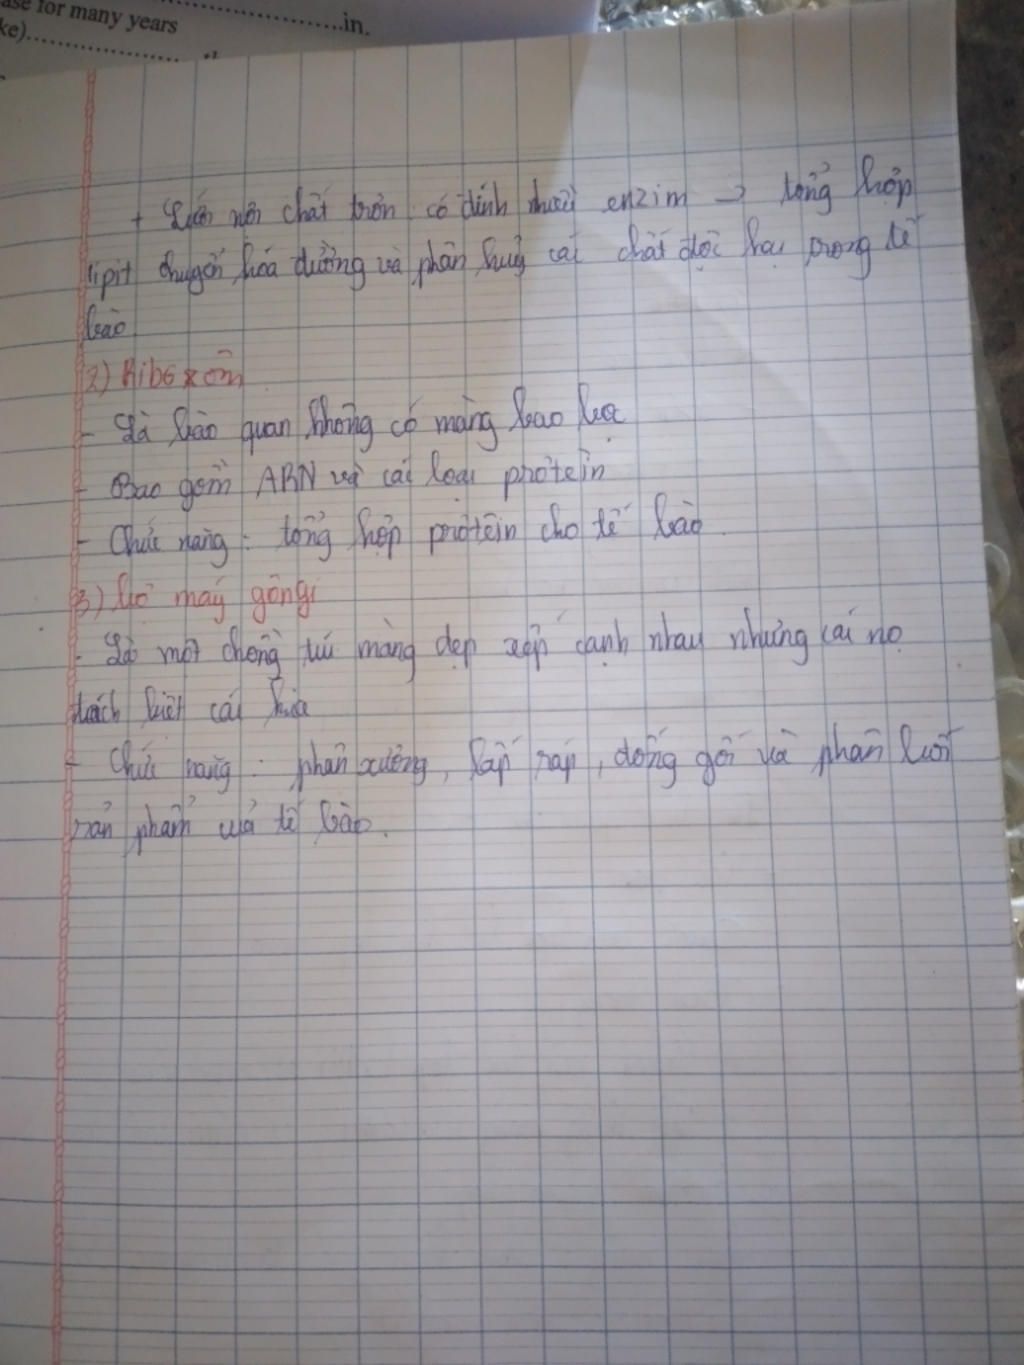 ase for many years
ke)....................
....................in.
+ Lưới nội chất trơn có đính nhiều enzim → tổng hợp
lipit chuyển hóa đường và phân huỷ các chất độc hại trong tế
bào
2) Riboxôm
- Là bào quan không có màng bao bọc
- Bao gồm ARN và các loại protein
- Chức năng : tổng hợp protein cho tế bào
3) Bộ máy gôngi
- Là một chồng túi màng dẹp xếp cạnh nhau nhưng cái nọ
tách biệt cái kia
- Chức năng : phân xưởng, lắp ráp, đóng gói và phân
sản phẩm của tế bào.